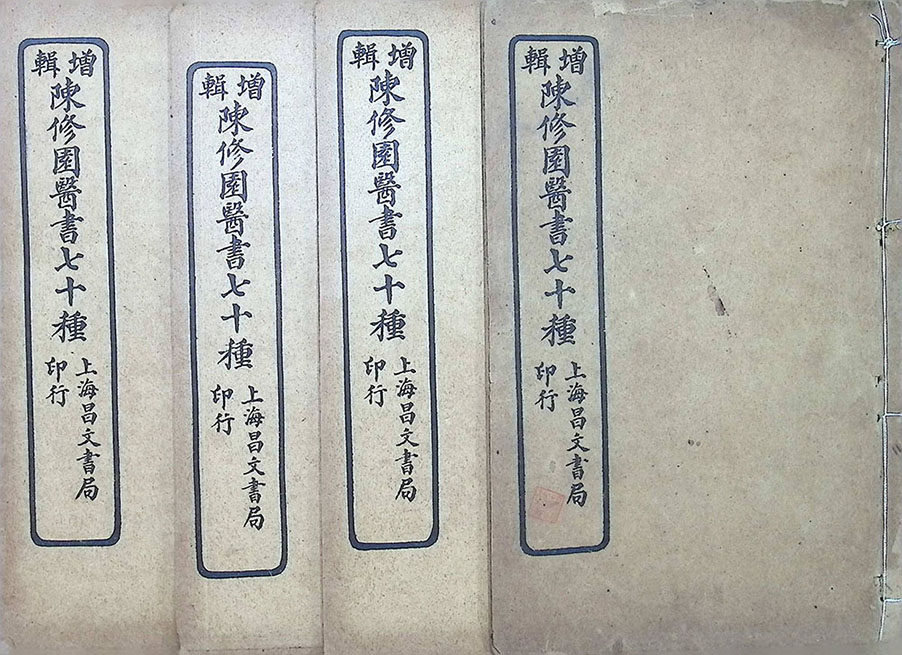 增輯
陳修園醫書七十種
上海昌文書局
印行
增輯
陳修園醫書七十種
上海昌文書局
印行
增輯
陳修園醫書七十種
上海昌文書局
印行
增輯
陳修園醫書七十種
上海昌文書局
印行